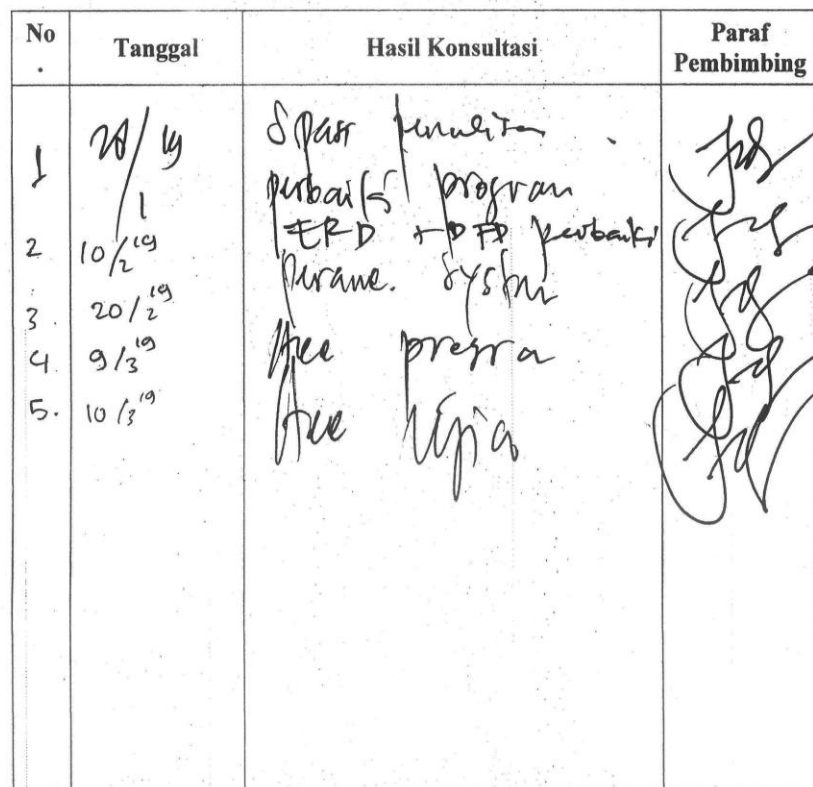 No. Tanggal Hasil Konsultasi Paraf Pembimbing
1 28/1 19 Spasi penulisan
perbaiki program
2 10/2 19 ERD + DFD perbaiki
3. 20/2 19 Peranc. System
4. 9/3 19 Acc progra
5. 10/3 19 Acc Ujia